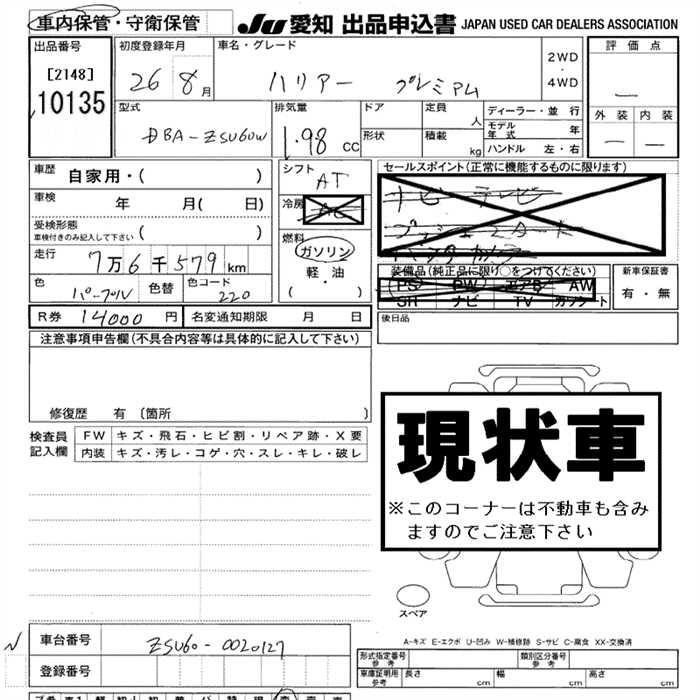 車内保管・守衛保管 JU 愛知 出品申込書 JAPAN USED CAR DEALERS ASSOCIATION
出品番号 初度登録年月 車名・グレード 2WD・4WD 評価点
[2148] 26 8月 ハリアー プレミアム —
10135 外装 内装
— —
型式 排気量 ドア 定員 人 ディーラー・並行
DBA-ZSU60W 1.98 cc 形状 積載 kg モデル年式 年
ハンドル 左・右
車歴 自家用・( ) シフト AT セールスポイント(正常に機能するものに限ります)
車検 年 月( 日) 冷房 AC ナビ テレビ
受検形態 車検付きのみ記入して下さい ( ) 燃料 ガソリン 軽・油 ( )
走行 7万6千579km 装備品(純正品に限り○をつけてください) 新車保証書
色 パープル 色替 色コード 220 PS PW エアB AW 有・無
SR ナビ TV カワシート
R券 14000円 名変通知期限 月 日 後日品
注意事項申告欄(不具合内容等は具体的に記入して下さい)
修復歴 有 〔箇所 〕
検査員記入欄 FW キズ・飛石・ヒビ割・リペア跡・X要
内装 キズ・汚レ・コゲ・穴・スレ・キレ・破レ
現状車
※このコーナーは不動車も含み
ますのでご注意下さい
スペア
A-キズ E-エクボ U-凹み W-補修跡 S-サビ C-腐食 XX-交換済
車台番号 ZSU60-0020127
登録番号
形式指定番号 参考 類別区分番号 参考
車庫証明用 参考 長さ cm 幅 cm 高さ cm